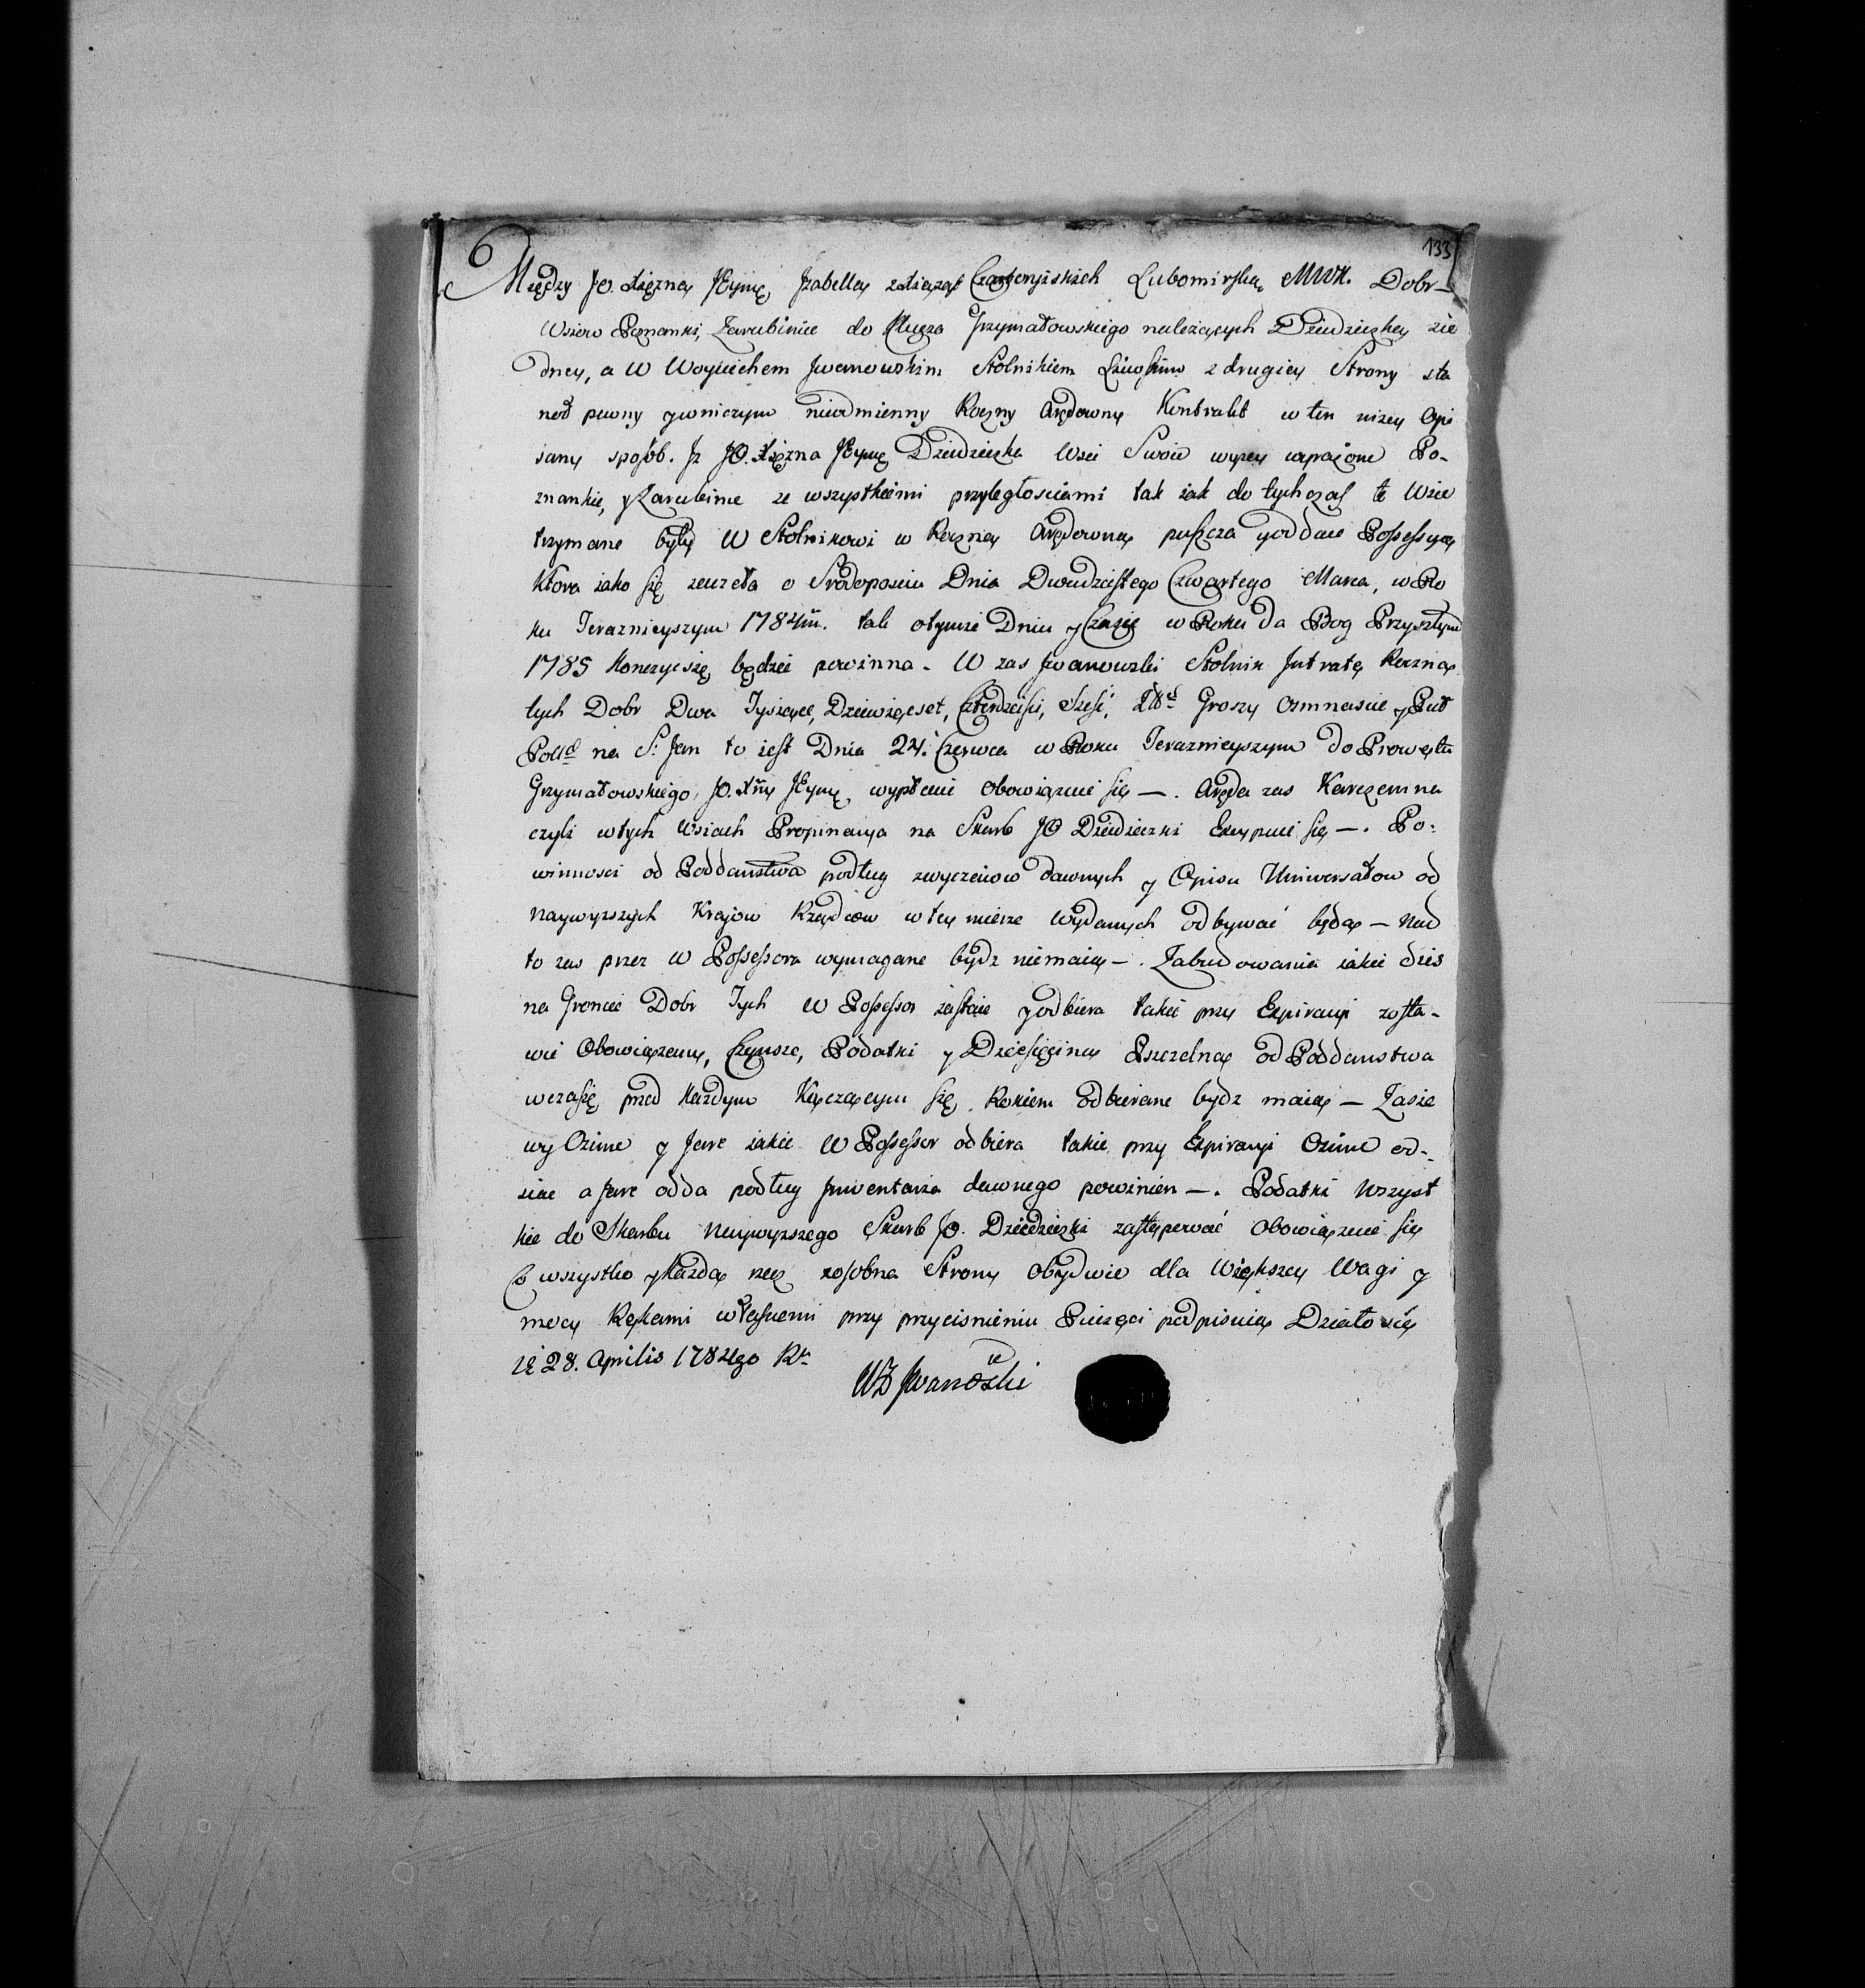 133
Między JO. Xiężną JEymę Jzabellą z Xiążąt Czartoryiskich Lubomirską MWK. Dobr
Wsiow Poznanki, Zarubiniec do Klucza Grzymałowskiego należących Dziedziczką zie
dney, a W Woyciechem Jwanowskim Stolnikiem z drugiey Strony sta
noł pewny y wniczym nieodmienny Roczny Arędowny Kontrakt w ten niżey Opi
sany sposób. Jż JO. Xiężna JEymę Dziedziczka Wsie Swoie wyżey wyrażone Po-
znankie, y Zarubince ze wszystkiemi przyległosciami tak iak do tychczas te Wsie
trzymane były W Stolnikowi w Roczną Arędowną puszcza y oddaie Possessyą
Ktora iako się zaczeła o Srodoposciu Dnia Dwudziestego Czwartego Marca, w Ro
ku Teraznieyszym 1784m. tak otymże Dniu y Czasie w Roku Da Bog Przyszłym
1785 Konczyć się będzie powinna - W zas Jwanowski Stolnik Jntratę Roczną
tych Dobr Dwa Tysiące, Dziewięcset, Czterdziesci, Szesć, Groszy Osmnascie y Puł
Poll na S: Jan to iest Dnia 24. Czerwca w Roku Teraznieyszym do Prowętu
Grzymałowskiego, JO. Xny JEymę wypłacić obowiązuie się —. Aręda zas Karczemna
czyli w tych Wsiach Propinacya na Skarb JO Dziedziczki Excypuie się —. Po:
winnosci od Poddanstwa podług zwyczaiow dawnych y Opisu Uniwersałow od
naywyzszych Kraiow Rządcow w tey mierze wydanych odbywać będą — nad
to zas przez W Possessora wymagane bydz niemaią —. Zabudowania iakie dzis
na Groncie Dobr Tych W Possessor zastaie y odbiera takie przy Expiracyi zosta-
wić Obowiązany, Czynsze, Podatki y Dziesięciną Pszczelną od Poddanstwa
wczasię przed Każdym Kączącym się Rokiem odbierane bydz maią — Zasie
wy Ozime y Jare iakie W Possessor odbiera takie przy Expiracyi Ozime od-
siać a Jare odda podług Jnwentarza dawnego powinien —. Podatki Wszyst
kie do Skarbu Naywyzszego Skarb JO. Dziedziczki zastępować Obowiązuie się
Co wszystko y Każdą rzecz zosobna Strony Obydwie dla Większey Wagi y
mocy Rękami własnemi przy przycisnieniu Pieczęci podpisuią Działo się
28. Aprilis 1784go Rku
Jwanoski